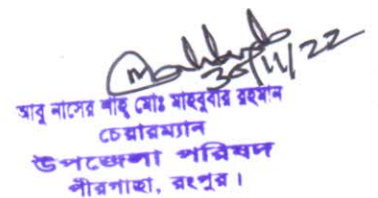 30/11/22
আবু নাসের শাহ মোঃ মাহবুবার রহমান
চেয়ারম্যান
উপজেলা পরিষদ
পীরগাছা, রংপুর।